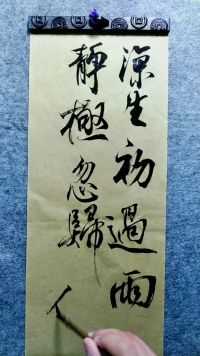 涼生初過雨
靜極忽歸人